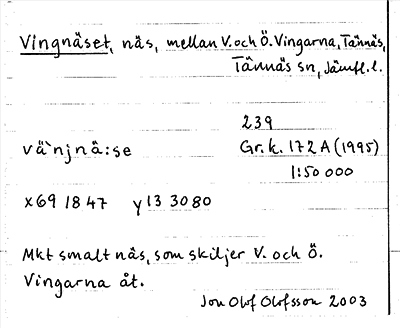 Vingnäset, näs, mellan V. och Ö. Vingarna, Tännäs,
Tännäs sn, Jämtl. l.
239
vä`njnä:se Gr. k. 172 A (1995)
1:50 000
x69 18 47 y13 30 80
Mkt smalt näs, som skiljer V. och Ö.
Vingarna åt.
Jon Olof Olofsson 2003